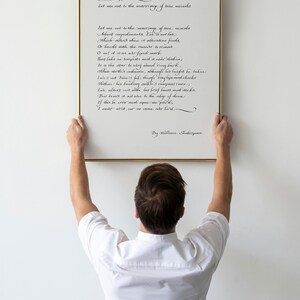 Let me not to the marriage of true minds
Let me not to the marriage of true minds
Admit impediments. Love is not love
Which alters when it alteration finds
Or bends with the remover to remove
O no! it is an ever fixed mark
That looks on tempests and is never shaken
It is the star to every
Love's not Time's fool, though
Within his bending sickle's compass come
Love alters not with his brief hours and weeks
But bears it out even to the edge of doom
If this be error and upon me proved
I never writ, nor no man ever loved
By William Shakespeare